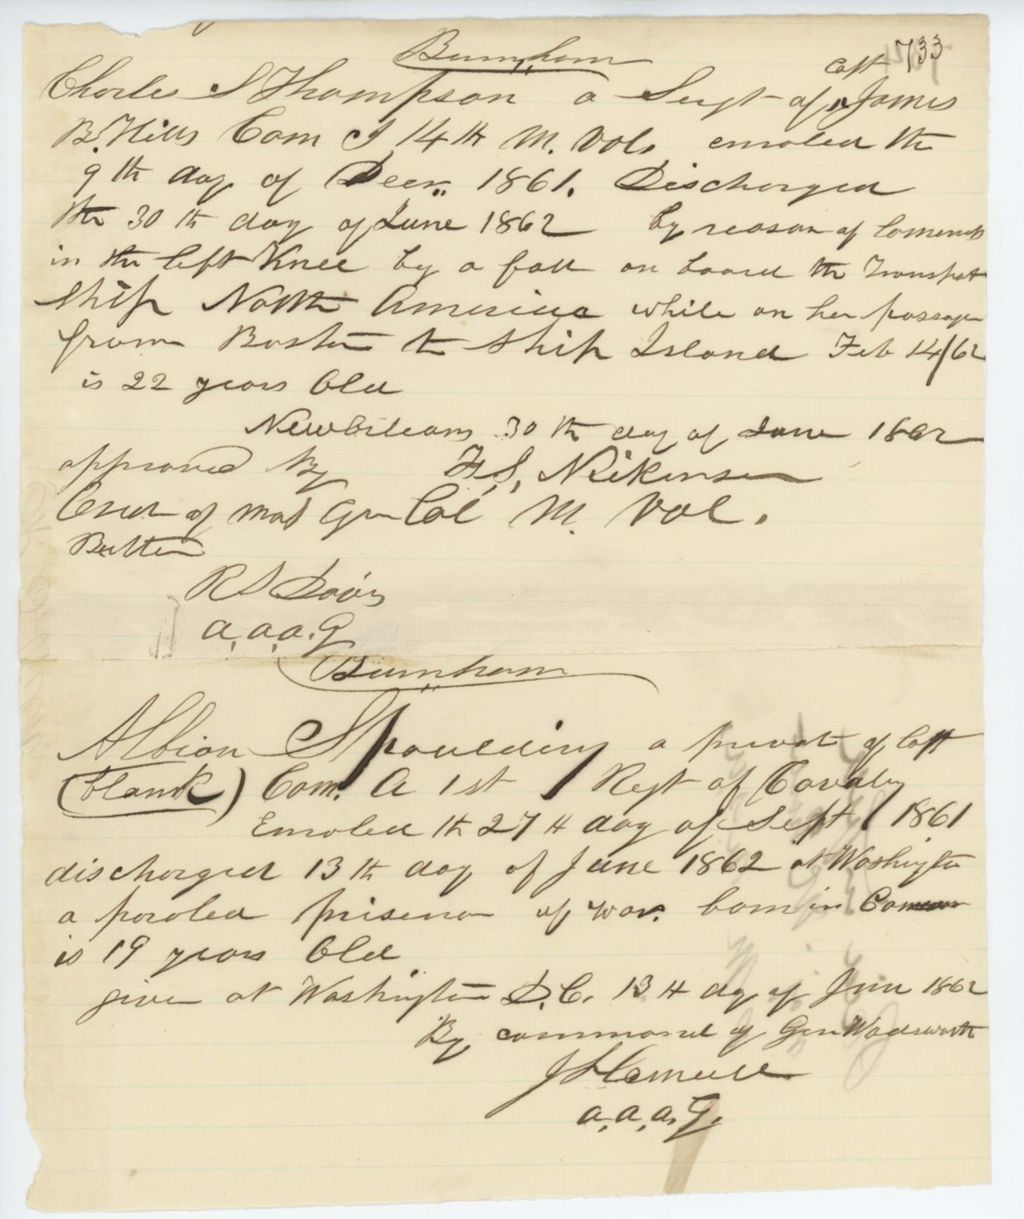 733
Burnham
Capt
Charles S Thompson a Sergt of James
B. Hills Com I 14th M. Vols enroled the
9th day of Decr. 1861. Discharged
the 30th day of June 1862 by reason of lameness
in the left Knee by a fall on board the Transpot
Ship North America while on her passage
from Boston to Ship Island Feb 14/62
is 22 years Old
New Orleans 30th day of June 1862
approved By F. S. Nickerson
of Maj Gen Col M. Vol.
Butler
R S Davis
a. a. a. G
Burnham
Albion Spoulding a privat of Capt
(blank) Com. A 1st Regt of Cavalry
Enroled th 27th day of Sept 1861
discharged 13th day of June 1862 at Washington
a paroled prisener of war. born in
is 19 years Old
given at Washington D.C. 13th day of Jun 1862
By command of Gen Wadsworth
a. a. a. G.